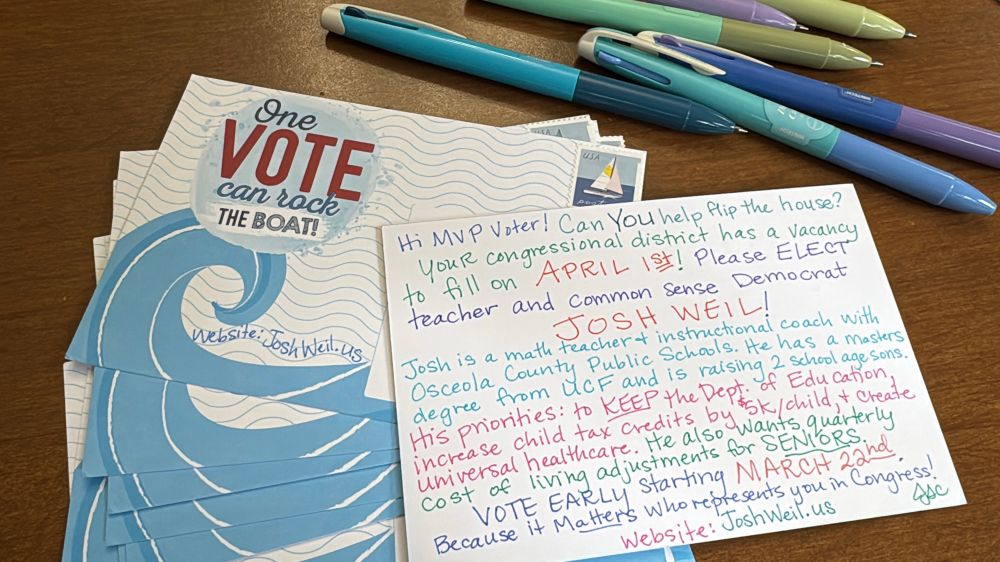 One
VOTE
can rock
THE BOAT!
Website: JoshWeil.us
USA
USA
Hi MVP Voter! Can YOU help flip the house?
YOUR congressional district has a vacancy
to fill on APRIL 1st! Please ELECT
teacher and common sense Democrat
JOSH WEIL!
Josh is a math teacher & instructional coach with
Osceola County Public Schools. He has a masters
degree from UCF and is raising 2 school age sons.
His priorities: to KEEP the Dept. of Education,
increase child tax credits by $5K/child, & create
universal healthcare. He also wants quarterly
cost of living adjustments for SENIORS.
VOTE EARLY starting MARCH 22nd.
Because it Matters Who represents you in Congress!
Website: JoshWeil.us